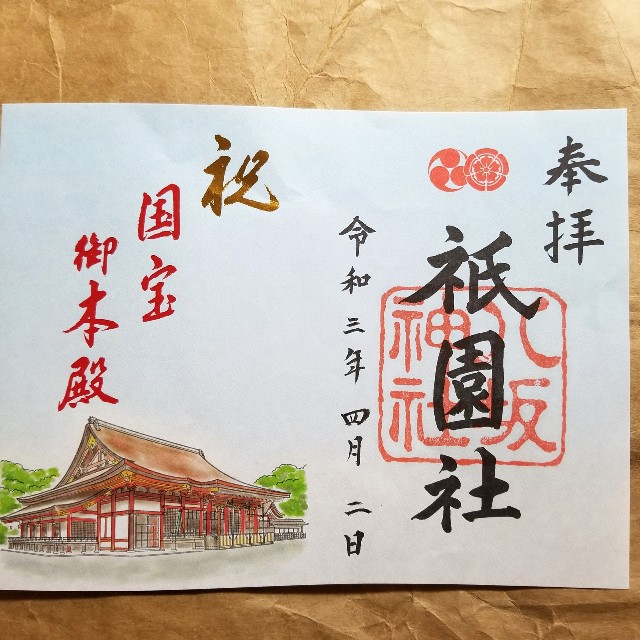 奉拝
祇園社
八坂
神社
令和三年四月二日
祝
国宝
御本殿